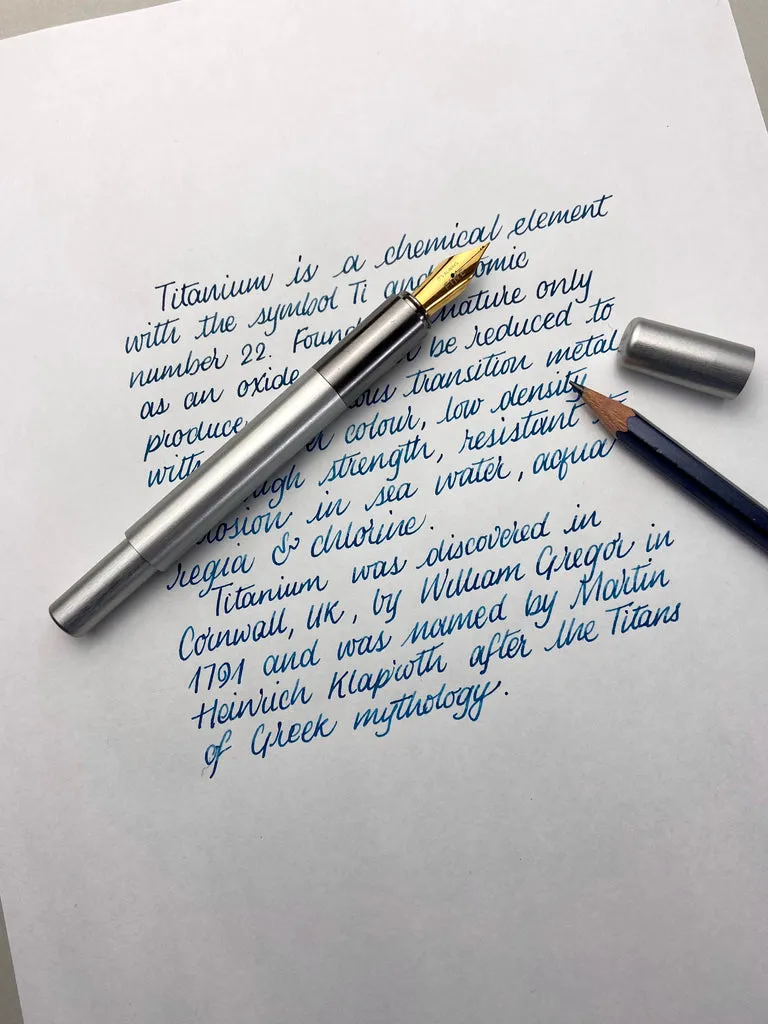 Titanium is a chemical element
with the symbol Ti and
number 22. Found nature only
as an oxide be reduced to
produce transition metal
with colour, low density
strength, resistant
in sea water, aqua
regia & chlorine.
Titanium was discovered in
Cornwall, UK, by William Gregor in
1791 and was named by Martin
Heinrich Klaproth after the Titans
of Greek mythology.